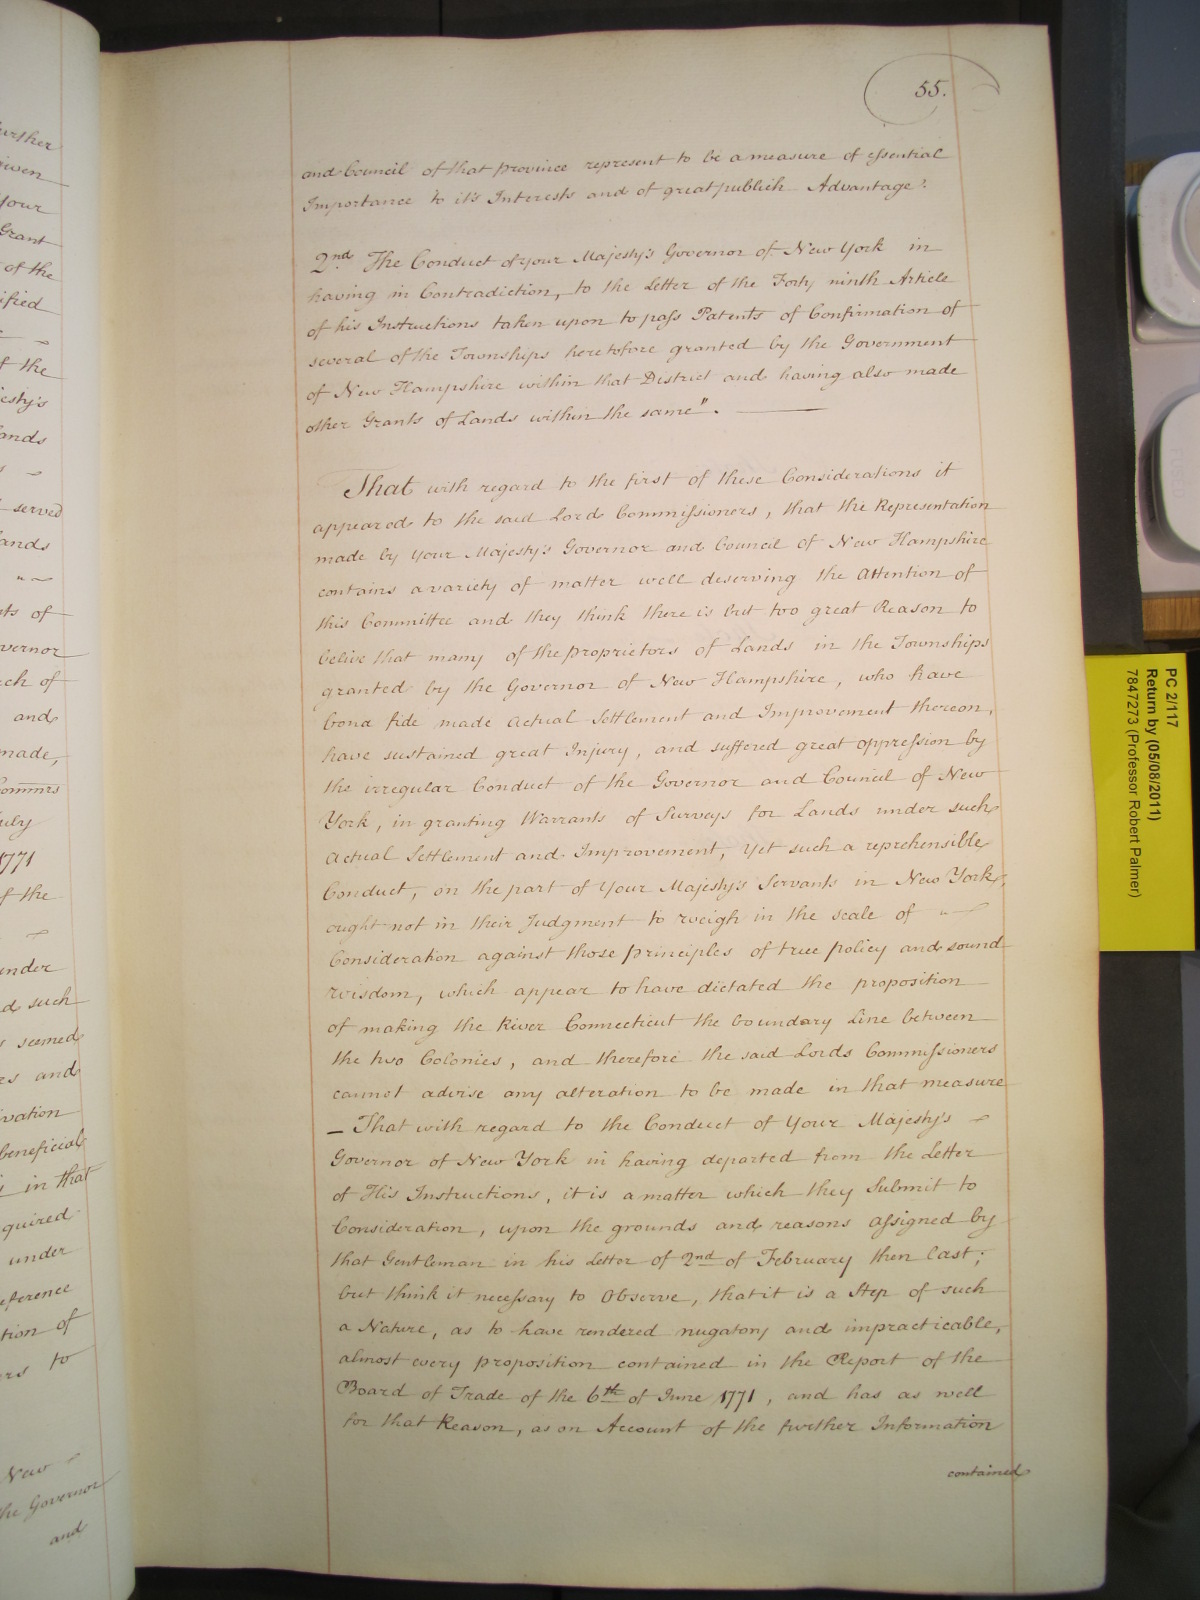 55.
and Council of that province represent to be a measure of essential
Importance to it's Interests and of great publick Advantage.
2nd. The Conduct of your Majesty's Governor of New York in
having in Contradiction, to the Letter of the Forty ninth Article
of his Instructions taken upon to pass Patents of Confirmation of
several of the Townships heretofore granted by the Government
of New Hampshire within that District and having also made
other Grants of Lands within the same".
That with regard to the first of these Considerations it
appeared to the said Lord Commissioners, that the Representation
made by your Majesty's Governor and Council of New Hampshire
contains a variety of matter well deserving the Attention of
this Committee and they think there is but too great Reason to
belive that many of the proprietors of Lands in the Townships
granted by the Governor of New Hampshire, who have
bona fide made actual Settlement and Improvement thereon,
have sustained great Injury, and suffered great oppression by
the irregular Conduct of the Governor and Council of New
York, in granting Warrants of Surveys for Lands under such
actual Settlement and Improvement, yet such a reprehensible
Conduct, on the part of your Majesty's Servants in New York,
ought not in their Judgment to weigh in the scale of
Consideration against those principles of true policy and sound
wisdom, which appear to have dictated the proposition
of making the River Connecticut the boundary Line between
the two Colonies, and therefore the said Lords Commissioners
cannot advise any alteration to be made in that measure
— That with regard to the Conduct of Your Majesty's
Governor of New York in having departed from the Letter
of His Instructions, it is a matter which they Submit to
Consideration, upon the grounds and reasons assigned by
that Gentleman in his Letter of 2nd of February then last;
but think it necessary to Observe, that it is a Step of such
a Nature, as to have rendered nugatory and impracticable,
almost every proposition contained in the Report of the
Board of Trade of the 6th of June 1771, and has as well
for that Reason, as on Account of the further Information
contained
PC 2/117
Return by (05/08/2011)
7847273 (Professor Robert Palmer)
further
given
Your
Grant
of the
of the
Lands
served
Lands
of
Governor
of
and
made,
Commrs
July
1771
of the
under
such
seemed
and
beneficial
in that
under
reference
of
to
New
the Governor
and